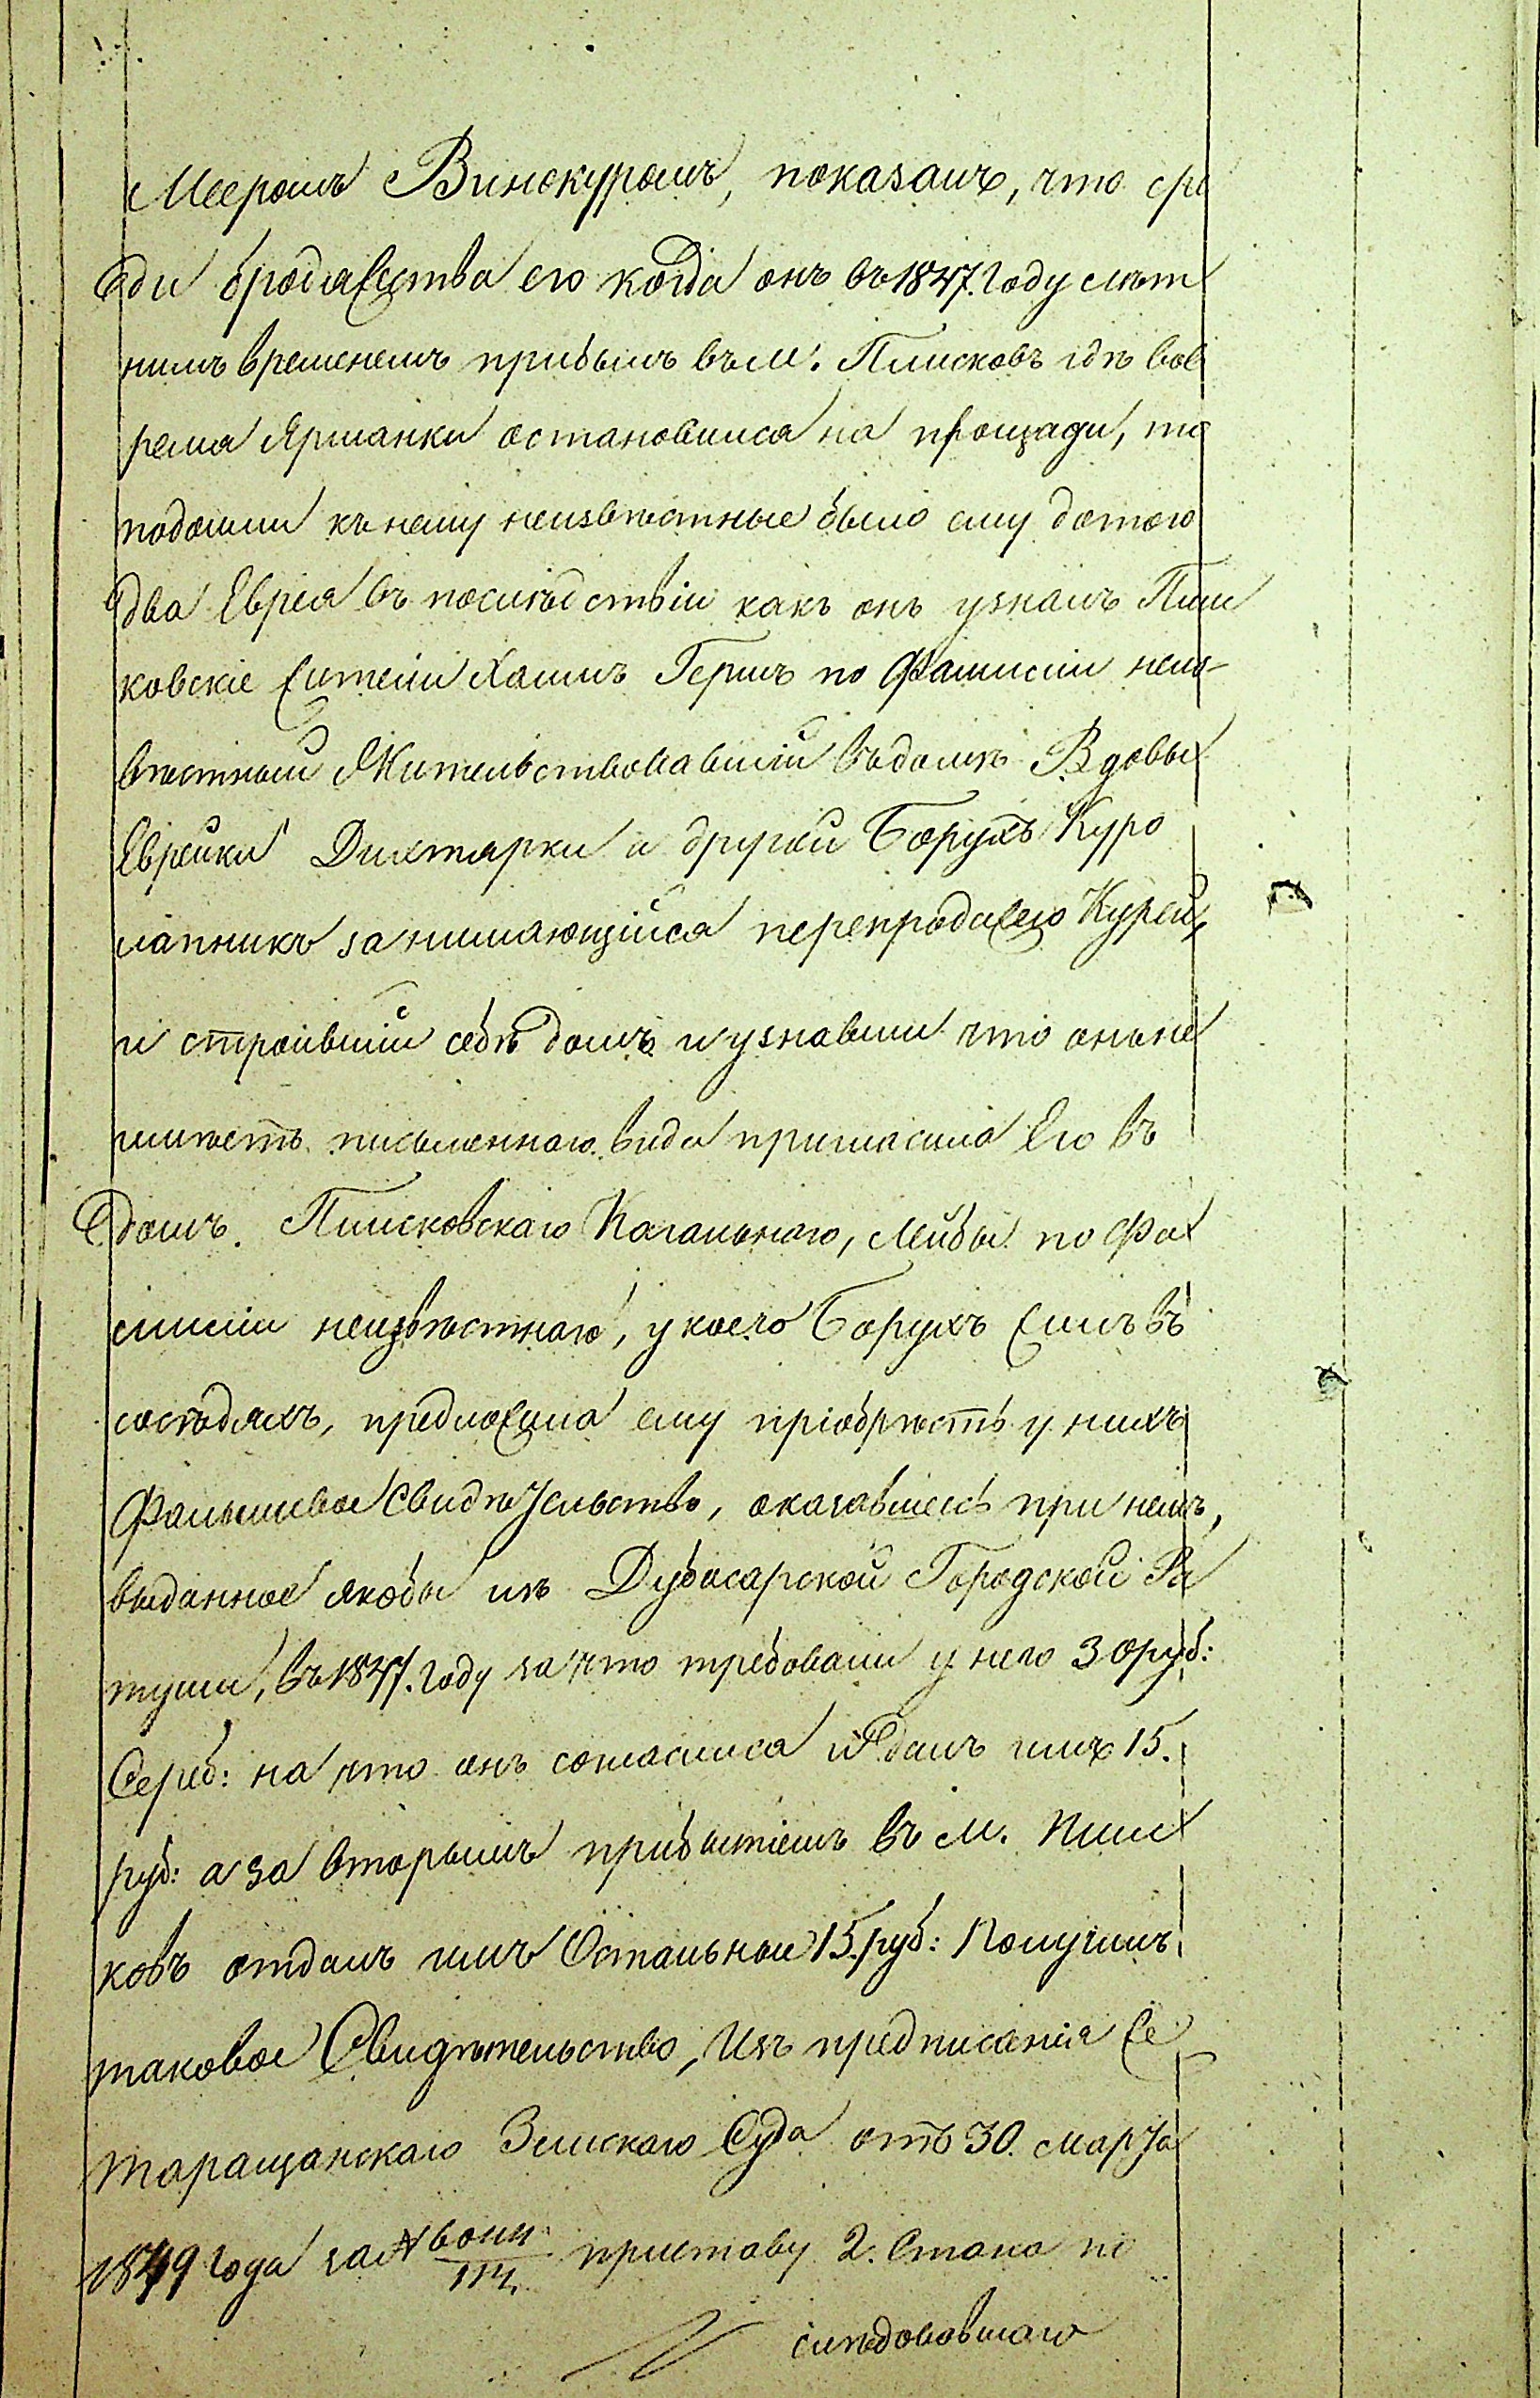 Мееромъ Винокуромъ, показалъ, что сре
ди бродяжества его когда онъ въ 1847. году лѣт
нимъ временемъ прибылъ въ м. Плисковъ гдѣ вов
ремя Ярманки остановился на площади, то
подошли къ нему неизвѣстные было ему дотого
два Еврея въ послѣдствіи какъ онъ узналъ Плис
ковскіе жители Хаимъ Гершъ по Фамиліи неиз-
вѣстный Жительствовавшій въ домѣ Вдовы
Еврейки Дихтярки а другой Борухъ Куро
лапникъ занимающійся перепродажею Курей,
и строившій себѣ домъ и узнавши что онъ не
имѣетъ письменнаго вида пригласило Его въ
домъ. Плисковскаго Кагальнаго, Лейбы по Фа
миліи неизвѣстнаго, у коего Борухъ жилъ въ
сосѣдяхъ, предложило ему пріобрѣсть у нихъ
Фальшивое Свидѣтельство, оказавшеесь при немъ,
выданное якобы изъ Дубосарской Городской Ра
туши, въ 1847. году за что требовали у него 30 руб:
Сереб: на что онъ согласился и далъ имъ 15.
руб: а за вторымъ прибытіемъ въ м. Плис
ковъ отдалъ имъ Остальныи 15. руб: Получилъ
таковое Свидѣтельство, Изъ предписанія же
таращанскаго Земскаго Суда отъ 30. марта
1849 года за № приставу 2. Стана по
слѣдовавшаго